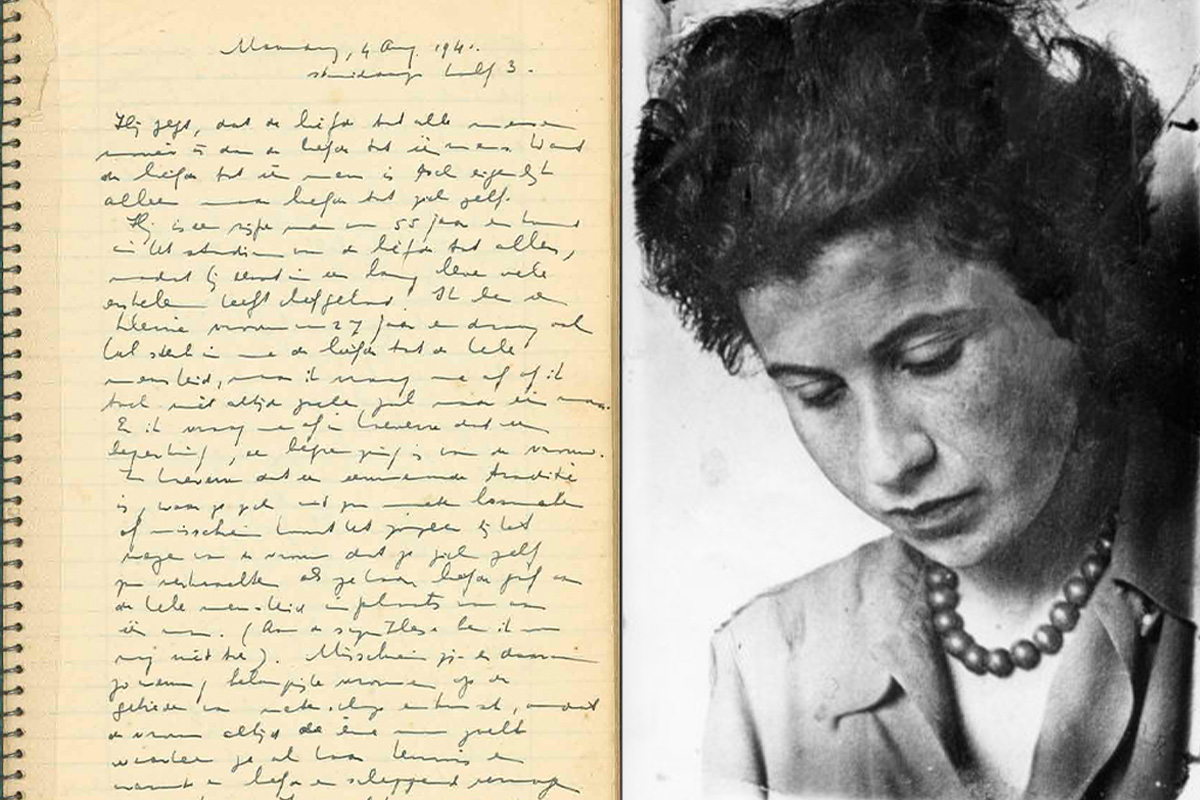 Maandag, 4 Aug. 1941.
's middags half 3.
Hij zegt, dat de liefde tot alle mensen
mooier is dan de liefde tot één mens. Want
de liefde tot één mens is toch eigenlijk
alleen maar liefde tot zich zelf.
Hij is een rijpe man van 55 jaar en komt
in het stadium van de liefde tot allen,
nadat hij eerst in een lang leven vele
enkelen heeft liefgehad. Ik ben een
kleine vrouw van 27 jaar en draag ook
heel sterk in me de liefde tot de hele
mensheid, maar ik vraag me af of ik
toch niet altijd zoeken zal naar één man.
En ik vraag me af in hoeverre dat een
beperking, een begrenzing is van de vrouw.
In hoeverre dat een eeuwenoude traditie
is, waar ze zich uit zou moeten losmaken
of misschien hoort het zozeer bij het
wezen van de vrouw dat ze zich zelf
zou als ze haar liefde gaf aan
de hele mensheid in plaats van aan
één man. (Aan de synthese ben ik nog
niet toe). Misschien zijn er daarom
zo weinig belangrijke vrouwen op de
gebieden van wetenschap en kunst, omdat
de vrouw altijd de éne man zoekt
waaraan ze al haar kennis en
warmte en liefde en scheppend vermogen